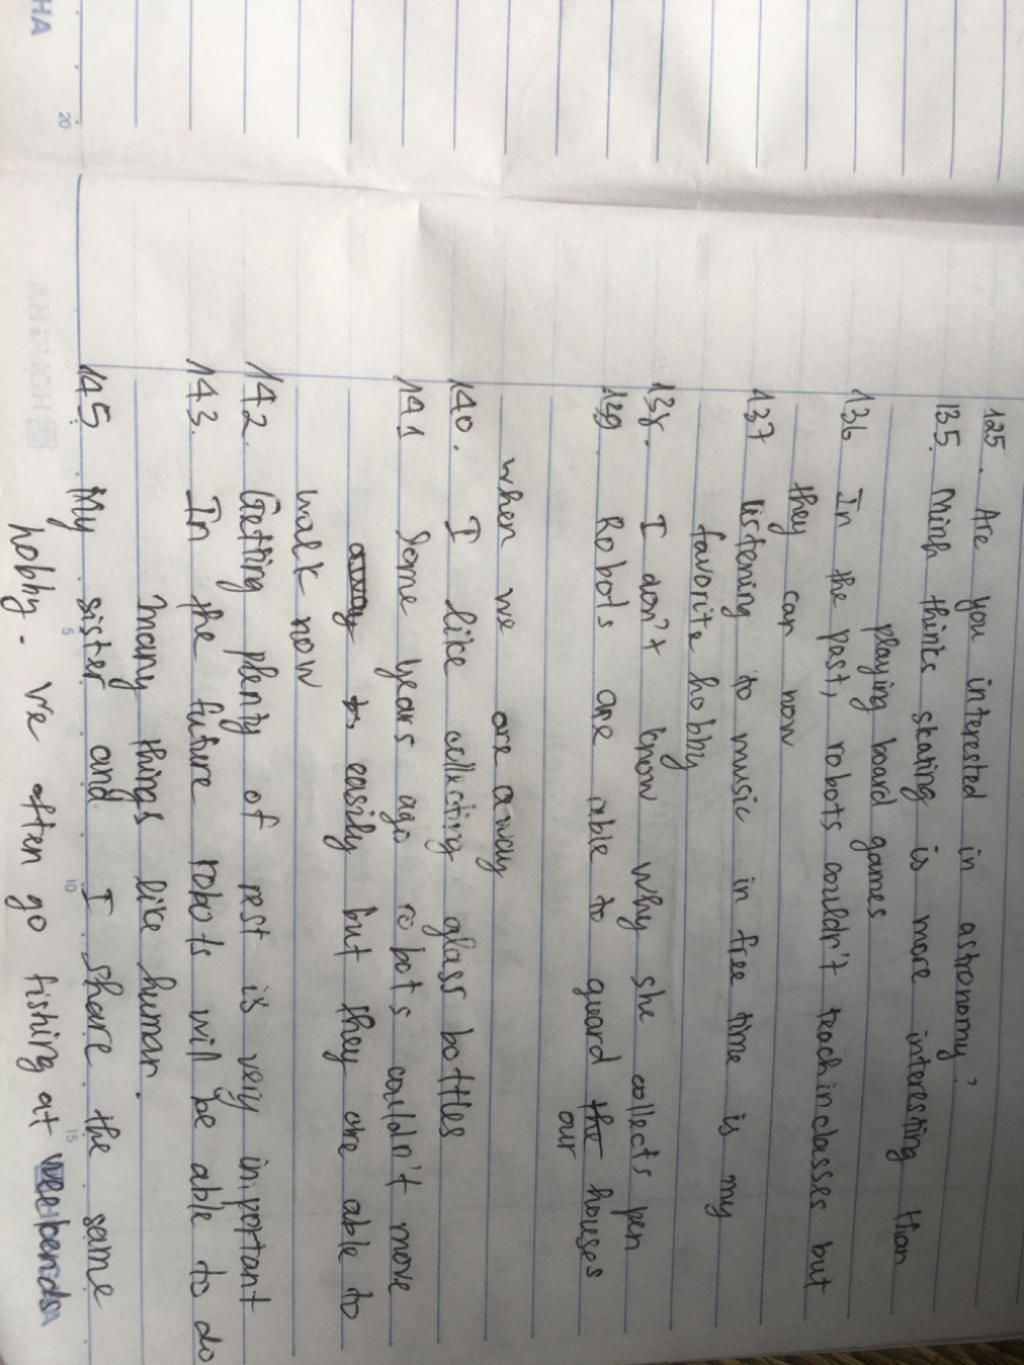 125. Are you interested in astronomy?
135. Minh thinks skating is more interesting than
playing board games
136 In the past, robots couldn't teach in classes but
they can now
137 listening to music in free time is my
favorite hobby
138. I don't know why she collects pen
139. Robots are able to guard the houses
our
when we are away
140. I like collecting glass bottles
141 Some years ago robots couldn't move
away to easily but they are able to
walk now
142. Getting plenty of rest is very important
143. In the future robots will be able to do
many things like human.
145 My sister and I share the same
hobby. We often go fishing at weekends
HA
20
5
10
15